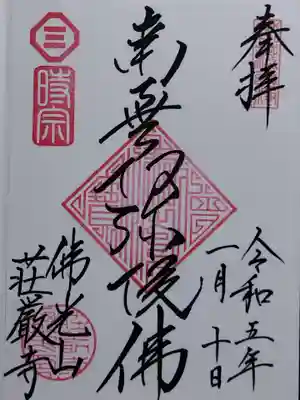 奉拝
令和五年
一月十日
南無阿弥陀佛
三
時宗
佛光山
荘厳寺